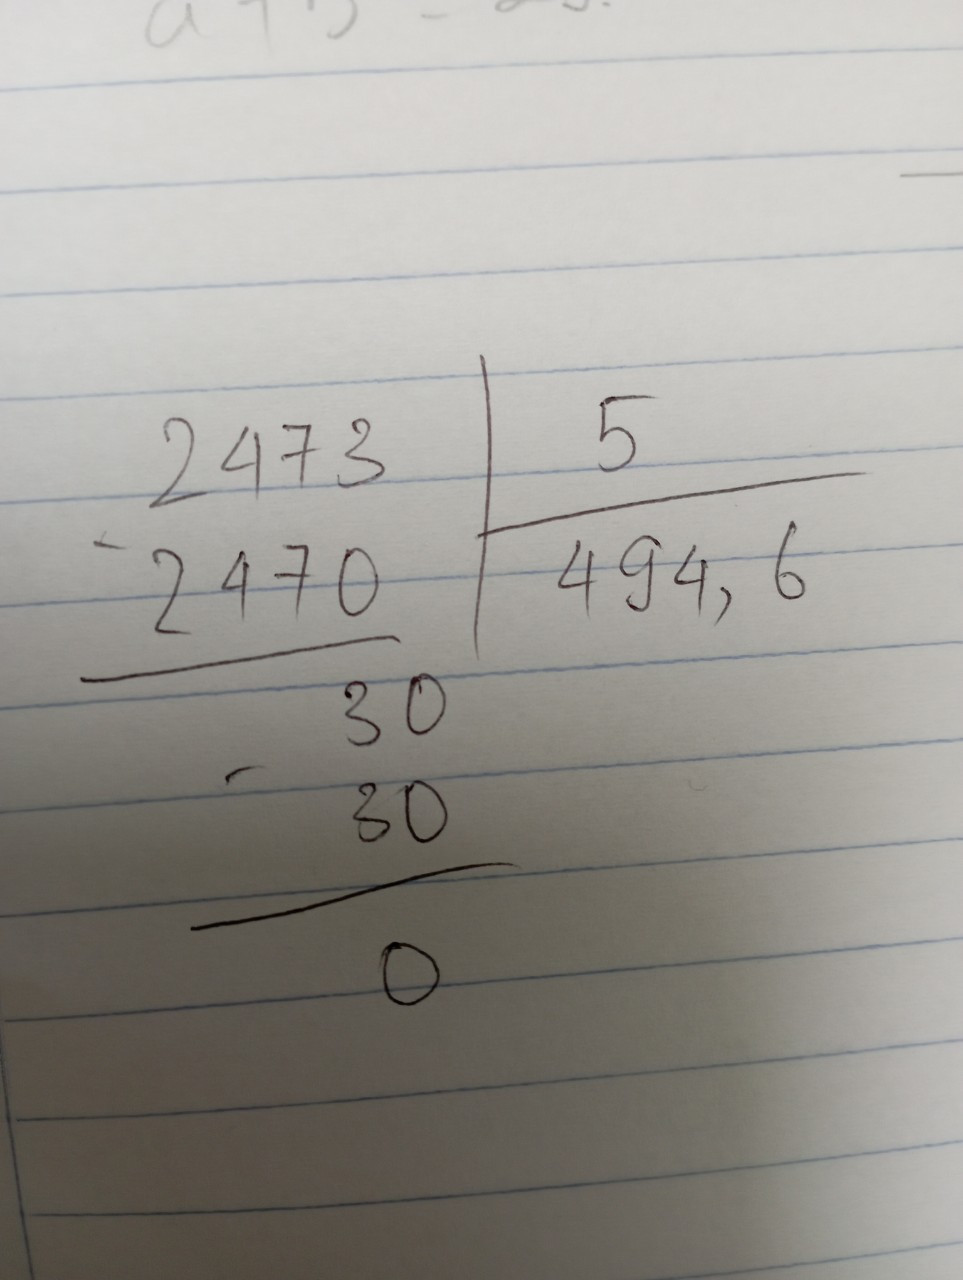 2473 | 5
- 2470 | 494,6
30
- 30
0